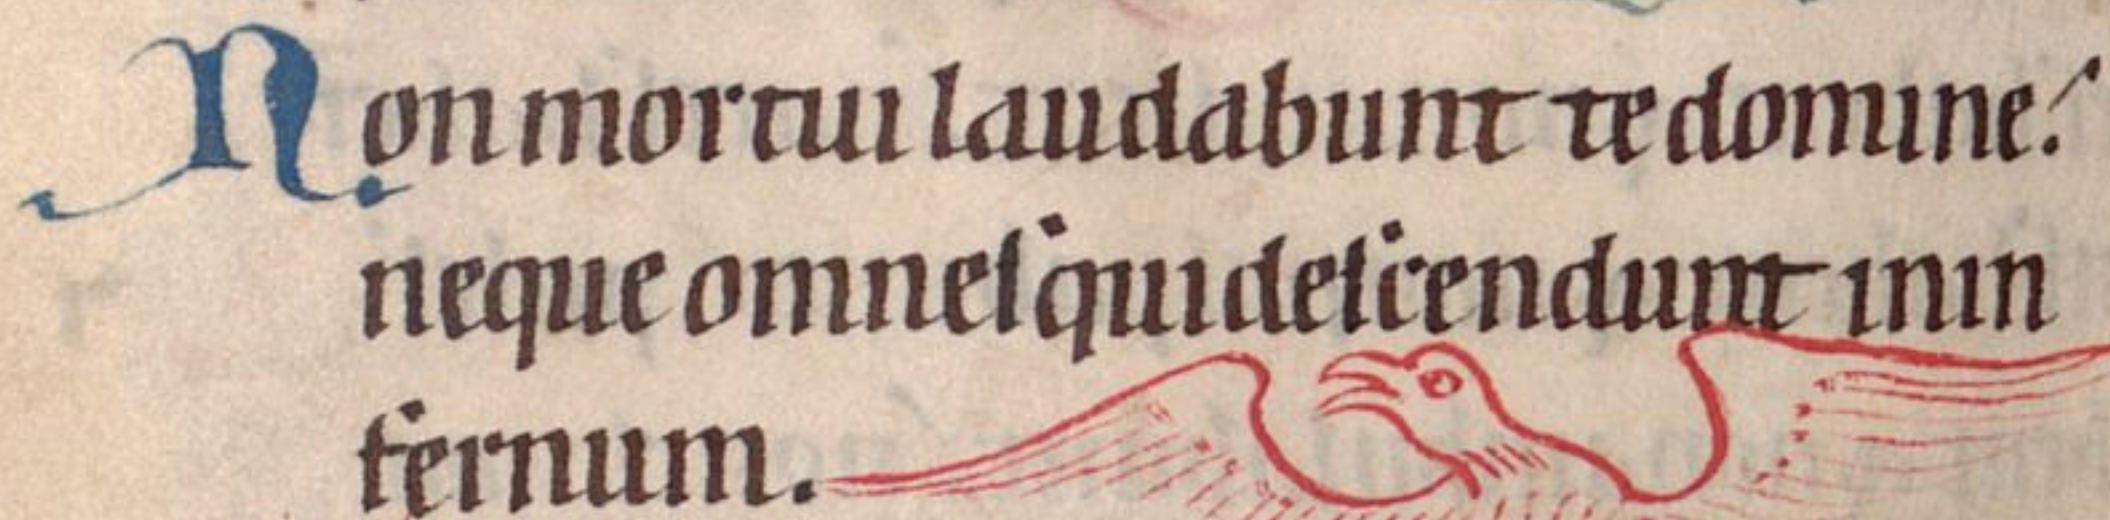 Non mortui laudabunt te domine.
neque omnes qui descendunt in in
fernum.